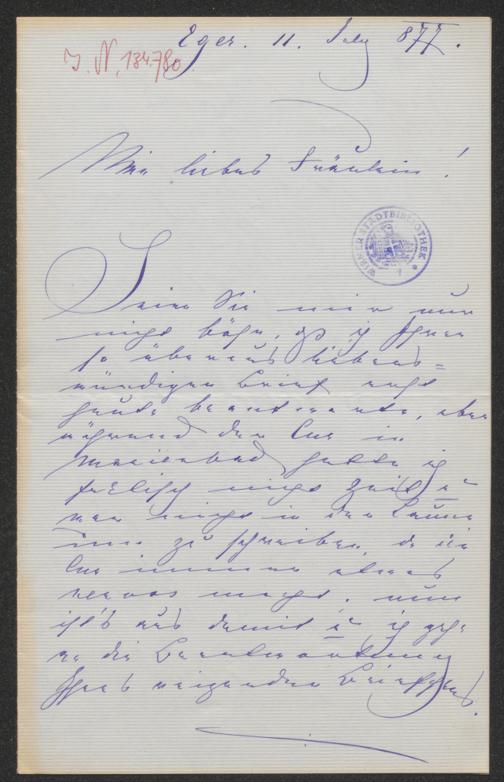 Eger. 11. July 877.
J. N. 134.780
Mein liebes Fräulein!
WIENER STADTBIBLIOTHEK
Seien Sie mir nur
nicht böse, daß ich Ihren
so überaus liebens=
würdigen Brief erst
heute beantworte, aber
während der Cur in
Marienbad hatte ich
factisch nicht Zeit u
war nicht in der Laune
um zu schreiben, da die
Cur immer etwas
nervos macht. nun
ist's aus damit u ich gehe
an die Beantwortung
Ihres reizenden Briefchens.